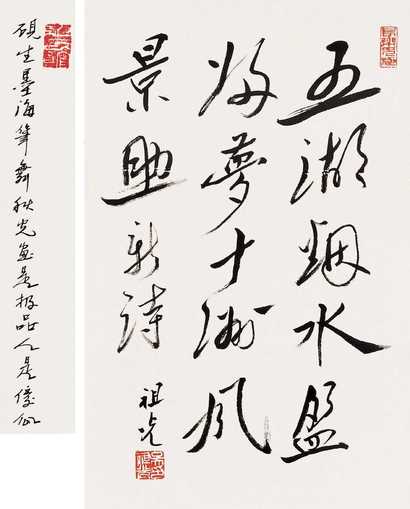 五湖烟水盈
归梦十洲风
景助新诗
祖光
砚生墨海笔舞秋光画是极品人是